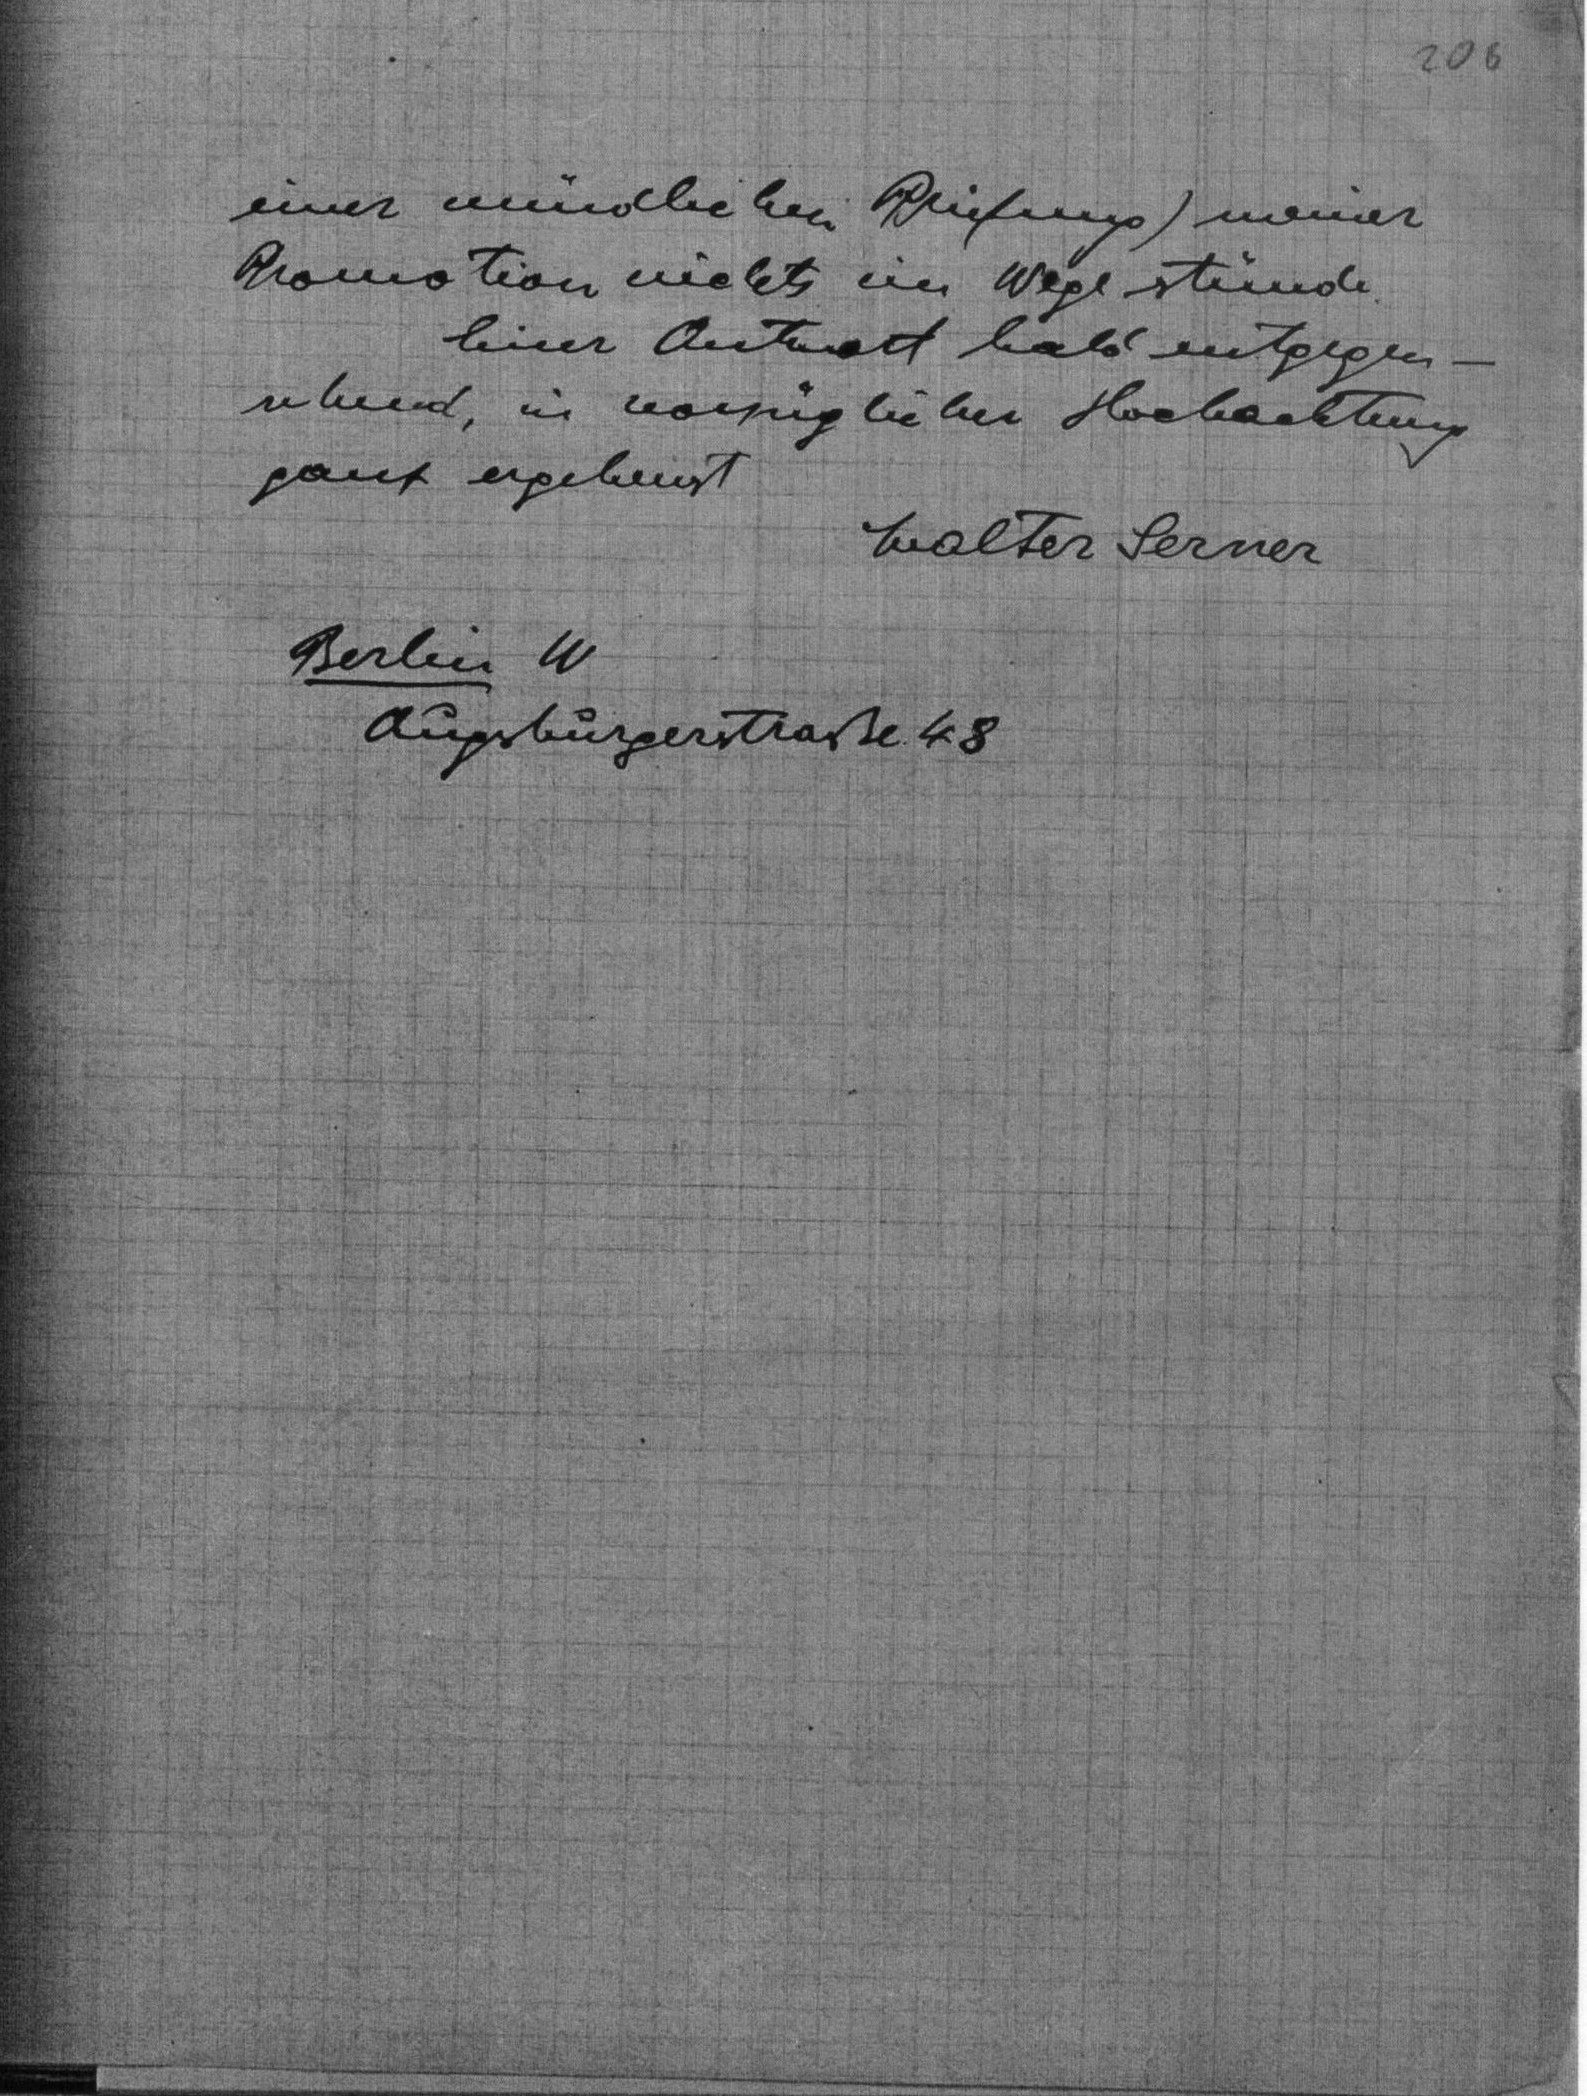 206
einer mündlichen Prüfung) meiner
Promotion nichts im Wege stünde.
Einer Antwort bald entgegen-
sehend, in vorzüglicher Hochachtung
ganz ergebenst
Walter Serner
Berlin W
Augsburgerstraße 48